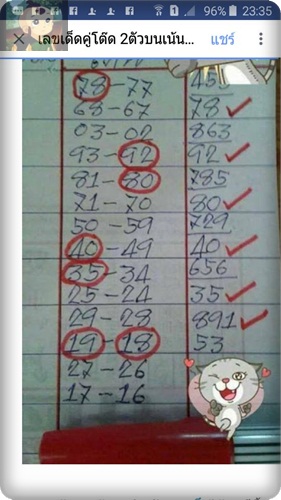 96% 23:35
เลขเด็ดคู่โต๊ด 2ตัวบนเน้น... แชร์
78-77 455
68-67 78
03-02 863
93-92 92
81-80 785
71-70 80
50-59 729
40-49 40
35-34 656
25-24 35
29-28 891
19-18 53
27-26
17-16